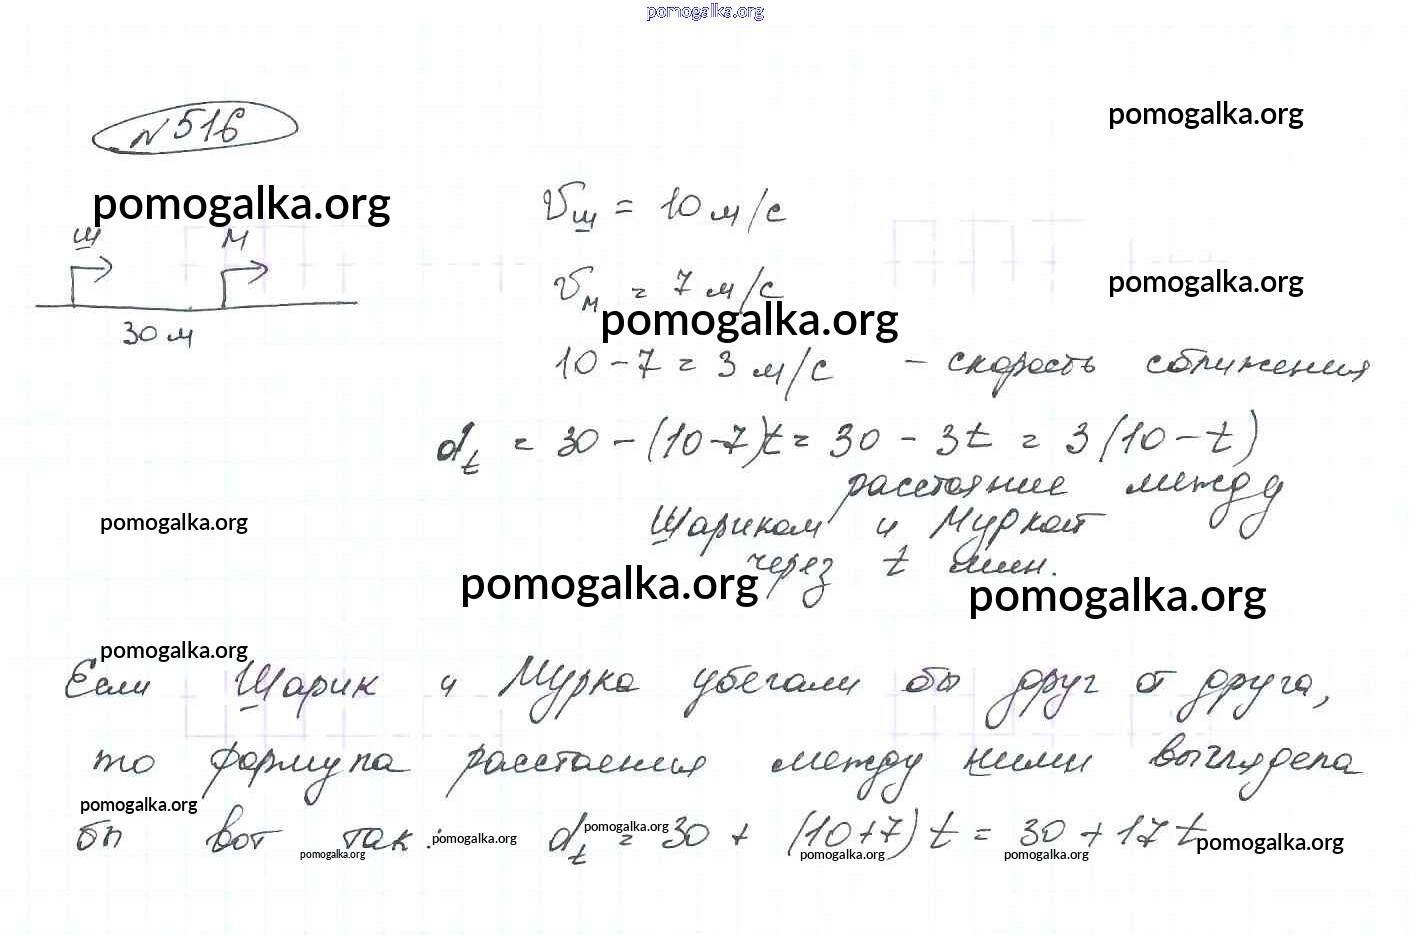 pomogalka.org
№516
pomogalka.org
pomogalka.org
Vш = 10 м/с
Ш М
Vм = 7 м/с
pomogalka.org
30 м
pomogalka.org
10 - 7 = 3 м/с - скорость сближения
dt = 30 - (10-7)t = 30 - 3t = 3(10-t)
расстояние между
pomogalka.org
Шариком и Муркой
через t мин.
pomogalka.org
pomogalka.org
pomogalka.org
Если Шарик и Мурка убегали бы друг от друга,
то формула расстояния между ними выглядела
pomogalka.org
бы вот так: dt = 30 + (10+7)t = 30 + 17t
pomogalka.org
pomogalka.org
pomogalka.org
pomogalka.org
pomogalka.org
pomogalka.org